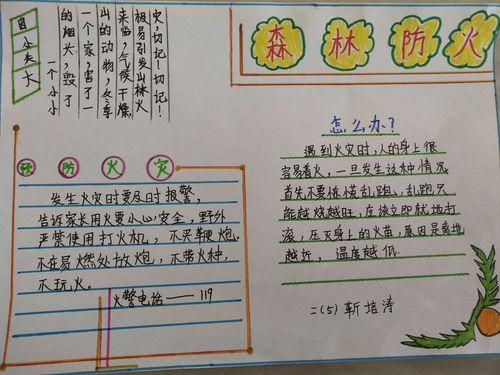 森林防火
因小失大
一个小小
的烟头,毁了
一个家,害了一
山的动物,冬季
来临,气候干燥
极易引发山林火
灾,切记!切记!
预防火灾
发生火灾时要及时报警,
告诉家长用火要小心安全,野外
严禁使用打火机,不买鞭炮.
不在易燃处放炮,不带火种,
不玩火。
火警电话——119
怎么办?
遇到火灾时,人的身上很
容易着火,一旦发生这种情况
首先不要惊慌乱跑,乱跑只
能越烧越旺,应该立即就地打
滚,压灭身上的火苗,原因是离地
越近,温度越低.
二(5)靳培涛